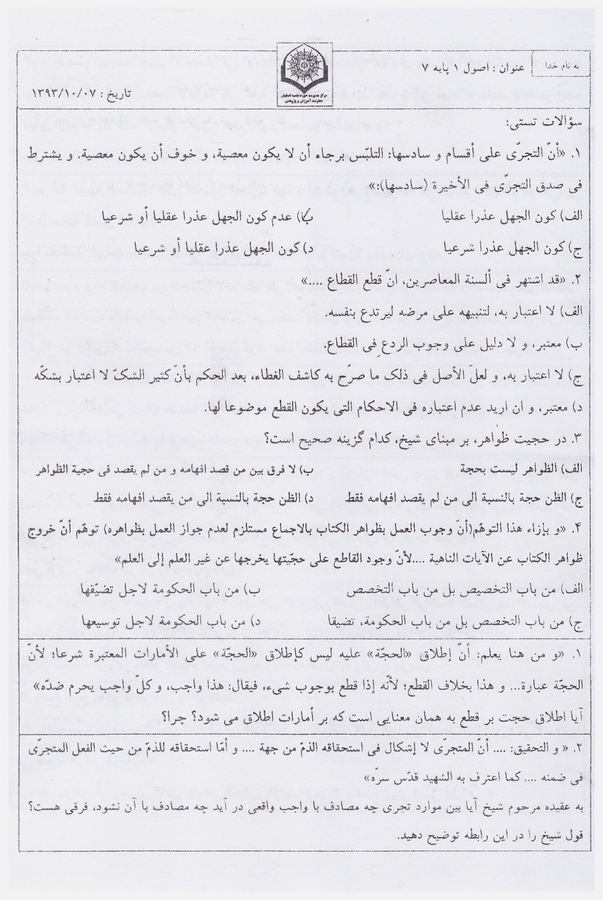 به نام خدا
عنوان : اصول ۱ پایه ۷
مرکز مدیریت حوزه علمیه اصفهان
معاونت آموزش و پژوهش
تاریخ : ۱۳۹۳/۱۰/۰۷
سؤالات تستی:
۱. «أنّ التجرّی علی أقسام و سادسها: التلبّس برجاء أن لا یکون معصیة، و خوف أن یکون معصیة. و یشترط
فی صدق التجرّی فی الأخیرة (سادسها):»
الف) کون الجهل عذرا عقلیا
ب) عدم کون الجهل عذرا عقلیا أو شرعیا
ج) کون الجهل عذرا شرعیا
د) کون الجهل عذرا عقلیا أو شرعیا
۲. «قد اشتهر فی ألسنة المعاصرین، انّ قطع القطاع ....»
الف) لا اعتبار به، لتنبیهه علی مرضه لیرتدع بنفسه.
ب) معتبر، و لا دلیل علی وجوب الردع فی القطاع.
ج) لا اعتبار به، و لعلّ الأصل فی ذلک ما صرّح به کاشف الغطاء، بعد الحکم بأنّ کثیر الشکّ لا اعتبار بشکّه
د) معتبر، و ان ارید عدم اعتباره فی الاحکام التی یکون القطع موضوعا لها.
۳. در حجیت ظواهر، بر مبنای شیخ، کدام گزینه صحیح است؟
الف) الظواهر لیست بحجة
ب) لا فرق بین من قصد افهامه و من لم یقصد فی حجیة الظواهر
ج) الظن حجة بالنسبة الی من لم یقصد افهامه فقط
د) الظن حجة بالنسبة الی من یقصد افهامه فقط
۴. «و بإزاء هذا التوهّم(أنّ وجوب العمل بظواهر الکتاب بالاجماع مستلزم لعدم جواز العمل بظواهره) توهّم أنّ خروج
ظواهر الکتاب عن الآیات الناهیة ....لأنّ وجود القاطع علی حجّیتها یخرجها عن غیر العلم إلی العلم»
الف) من باب التخصیص بل من باب التخصص
ب) من باب الحکومة لاجل تضیّقها
ج) من باب التخصص بل من باب الحکومة، تضیقا
د) من باب الحکومة لاجل توسیعها
۱. «و من هنا یعلم: أنّ إطلاق «الحجّة» علیه لیس کإطلاق «الحجّة» علی الأمارات المعتبرة شرعا؛ لأنّ
الحجّة عبارة... و هذا بخلاف القطع؛ لأنّه إذا قطع بوجوب شیء، فیقال: هذا واجب، و کلّ واجب یحرم ضدّه»
آیا اطلاق حجت بر قطع به همان معنایی است که بر أمارات اطلاق می شود؟ چرا؟
۲. « و التحقیق: .... أنّ المتجرّی لا إشکال فی استحقاقه الذمّ من جهة .... و أمّا استحقاقه للذمّ من حیث الفعل المتجرّی
فی ضمنه .... کما اعترف به الشهید قدّس سرّه»
به عقیده مرحوم شیخ آیا بین موارد تجری چه مصادف با واجب واقعی در آید چه مصادف با آن نشود، فرقی هست؟
قول شیخ را در این رابطه توضیح دهید.